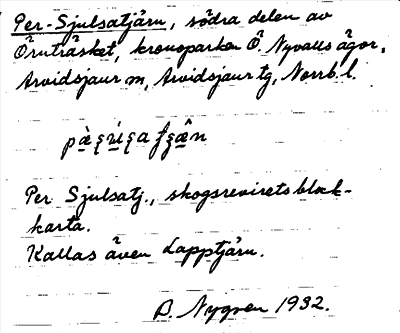 Per-Sjulsatjärn, södra delen av
Örnträsket, kronoparken Ö. Nyvalls ägor,
Arvidsjaur m, Arvidsjaur tg, Norrb. l.
Per Sjulsatj., skogsrevirets blok-
karta.
Kallas även Lapptjärn.
B. Nygren 1932.